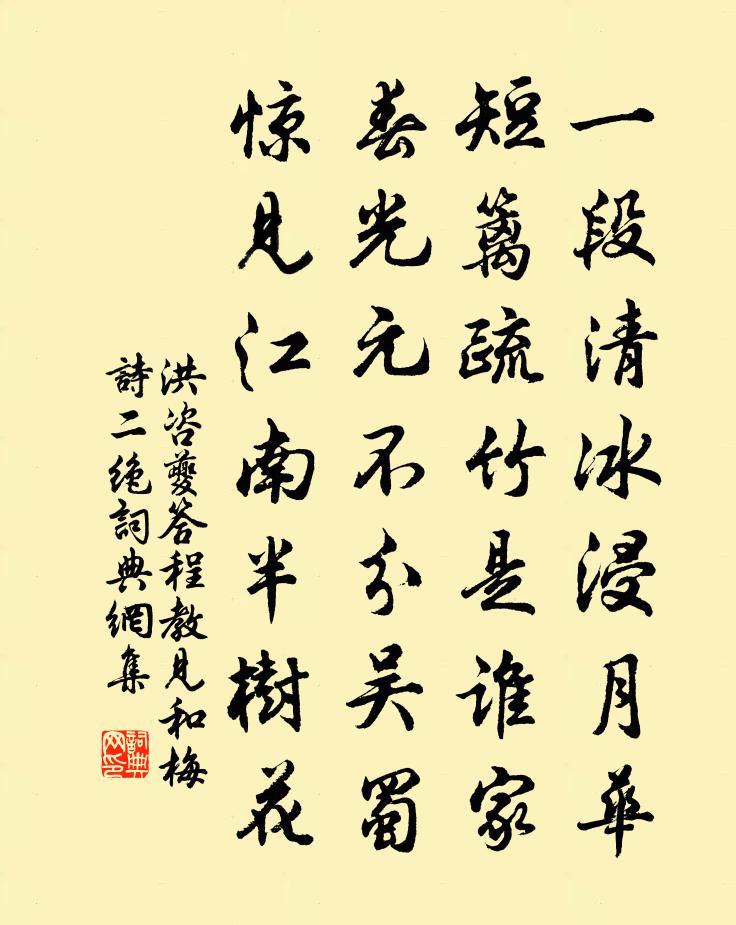 一段清冰浸月華
短篱疏竹是谁家
春光元不分吴蜀
惊見江南半樹花
洪咨夔答程教見和梅
詩二绝詞典網集
詞典
网印